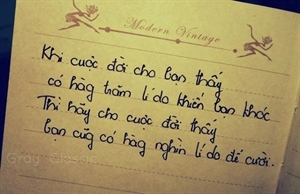 Modern Vintage
Khi cuộc đời cho bạn thấy
có hàg trăm lí do khiến bạn khóc
Thì hãy cho cuộc đời thấy
bạn cũg có hàg nghìn lí do để cười.
Gray Classic